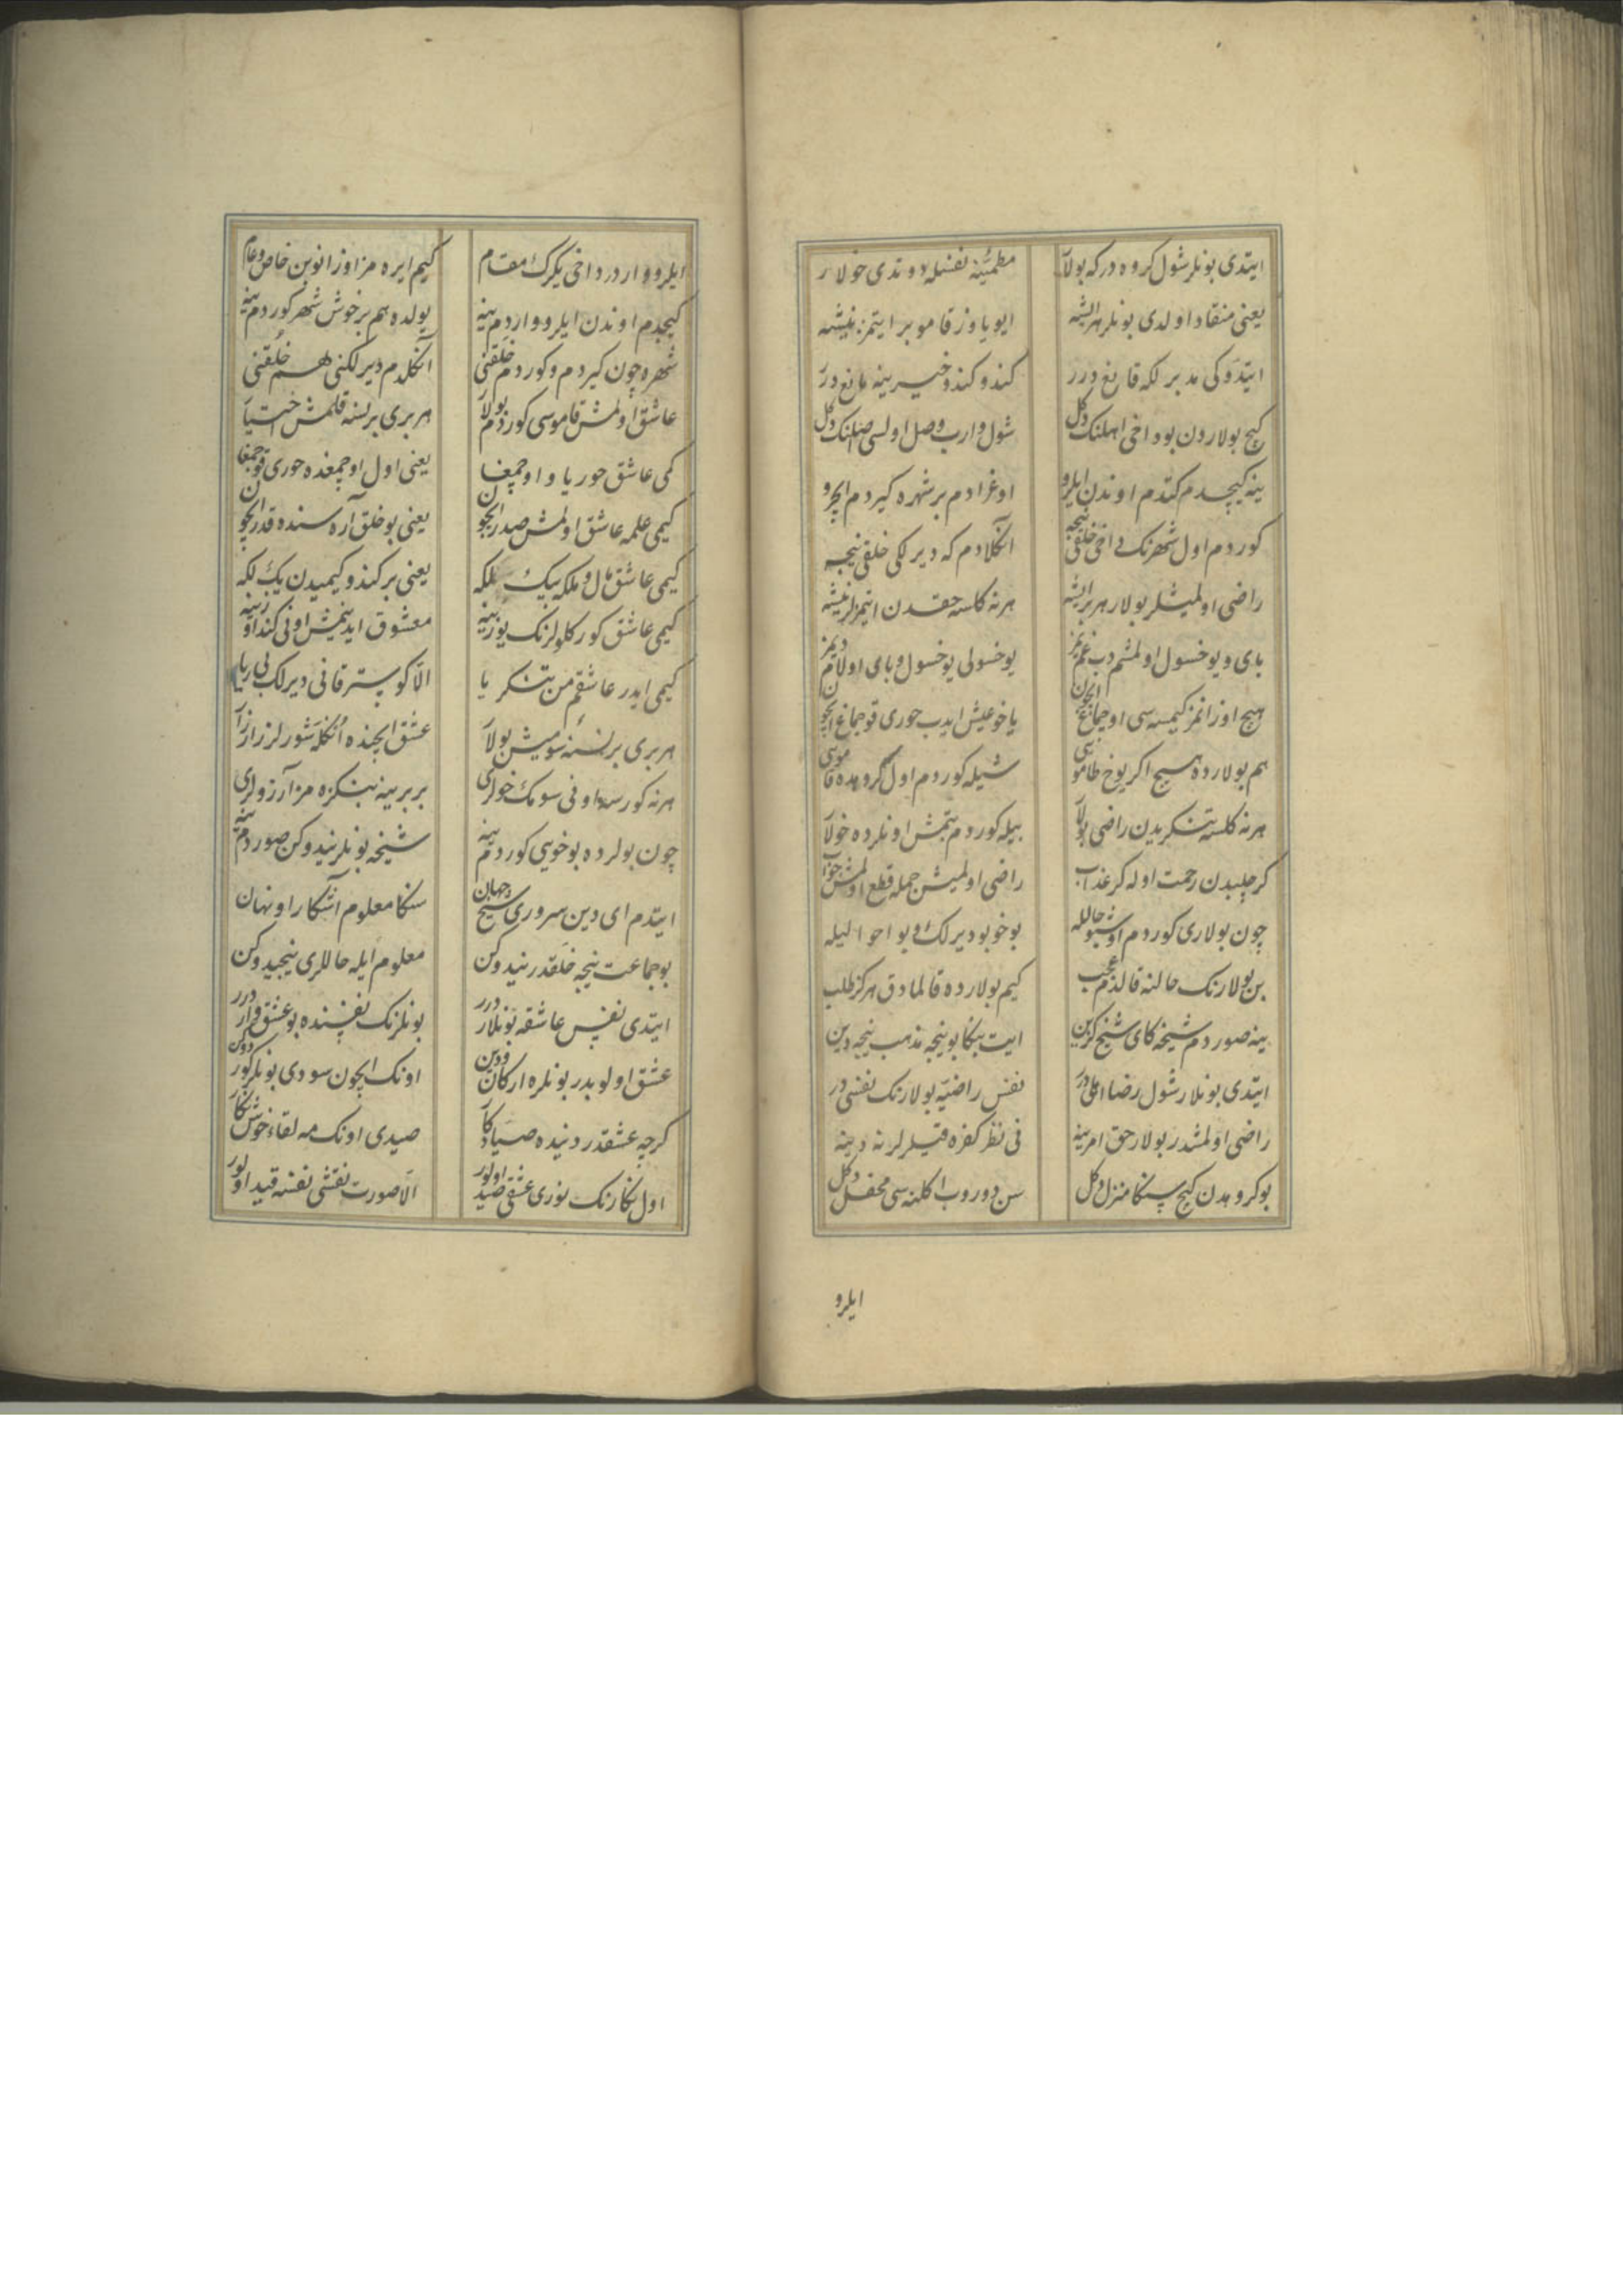 ایتدی بونلر شول کروه درکه بولار مطمئنه نفسله دوندی خولار
یعنی منقاد اولدی بونلر هر ایشه ایو یاوز قامو بر ایتمز نیشه
ایتدوکی مدبرلکه قانع درر کندو کندو خیرینه مانع درر
کیج بولاردن بو داخی اهلنک دکل شول وارب وصل اولسی صلنک دکل
ینه کیچدم کتدم اوندن ایلرو اوغرادم بر شهره کیردم ایچرو
کوردم اول شهرنک داخی خلقی نیجه انکلادم که دیرلکی خلقی نیجه
راضی اولمیشلر بولار هر بر ایشه هر نه کلسه حقدن ایتمزلر نیشه
بای و یوخسول اولمشم دب غم یمز یوخسولی یوخسول و بای اولام دیمز
هیچ اوزانمز کیمسه سی اوچماغ ایچون یا خو عیش ایدب حوری قوچماغ ایچون
هم بولارده هیچ اکر یوخ طامو سی شیله کوردم اول کروهده قاموسی
هر نه کلسه تنکریدن راضی بولار بیله کوردم بتمش اونلرده خولار
کر چلبدن رحمت اوله کر عذاب راضی اولمیش جمله قطع اولمش جواب
چون بولاری کوردم اوشبو حالله بو خو بو دیرلک و بو احوالیله
بن بولارنک حالنه قالدم عجب کیم بولارده قالمادق هرکز طلب
ینه صوردم شیخه کای شیخ کزین ایت بنکا بو نیجه مذهب نیجه دین
ایتدی بونلار شول رضا اهلی درر نفس راضیه بولارنک نفسی در
راضی اولمشدر بولار حق امرینه فی نظر کفره قیلرلر نه دینه
بو کروهدن کیج سنکا منزل دکل سن دوروب اکلنه سی محفل دکل
ایلرو
ایلرو واردر داخی یکرک مقام کیم ایره مز اوزانوبن خاص و عام
کیچدم اوندن ایلرو واردم ینه یولده هم بر خوش شهر کوردم ینه
شهره چون کیردم و کوردم خلقنی آنکلدم دیرلکنی هم خلقنی
عاشق اولمش قاموسی کوردم بولار هر بری بر نسنه قلمش اختیار
کمی عاشق حوریا و اوچمغا یعنی اول اوچمغده حوری قوچمغا
کیمی علمه عاشق اولمش صیدر ایچون یعنی بو خلق آره سنده قدر ایچون
کیمی عاشق مال و ملکه بیک بلکه یعنی بر کندو کیمیدن یک لکه
کیمی عاشق کورکلولرنک یوزینه معشوق ایدینمیش اونی کندوزینه
کیمی ایدر عاشقم من تنکریا الا کوستر قانی دیرلک بی ریا
هر بری بر نسنه سومیش بولار عشق ایچنده اُنکله شورلر زار زار
هر نه کورسه اونی سومک خولری بر برینه بنکزه مز آرزولری
چون بولرده بو خویی کوردم ینه شیخه بونلر نیدوکن صوردم ینه
ایتدم ای دین سروری شیخ جهان سنکا معلوم آشکارا و نهان
بو جماعت نیجه خلقدر نیدوکن معلوم ایله حاللری نیجیدوکن
ایتدی نفس عاشقه بونلار درر بونلرنک نفسنده بو عشق وار درر
عشق اولوبدر بونلره ارکان و دین اونک ایچون سودی بونلر کوردوکن
کرچه عشقدر دنیده صیاد کار صیدی اونک مه لقا و خوش نکار
اول نکارنک نوری عشقی صید اولور الا صورت نقشی نفسه قید اولور